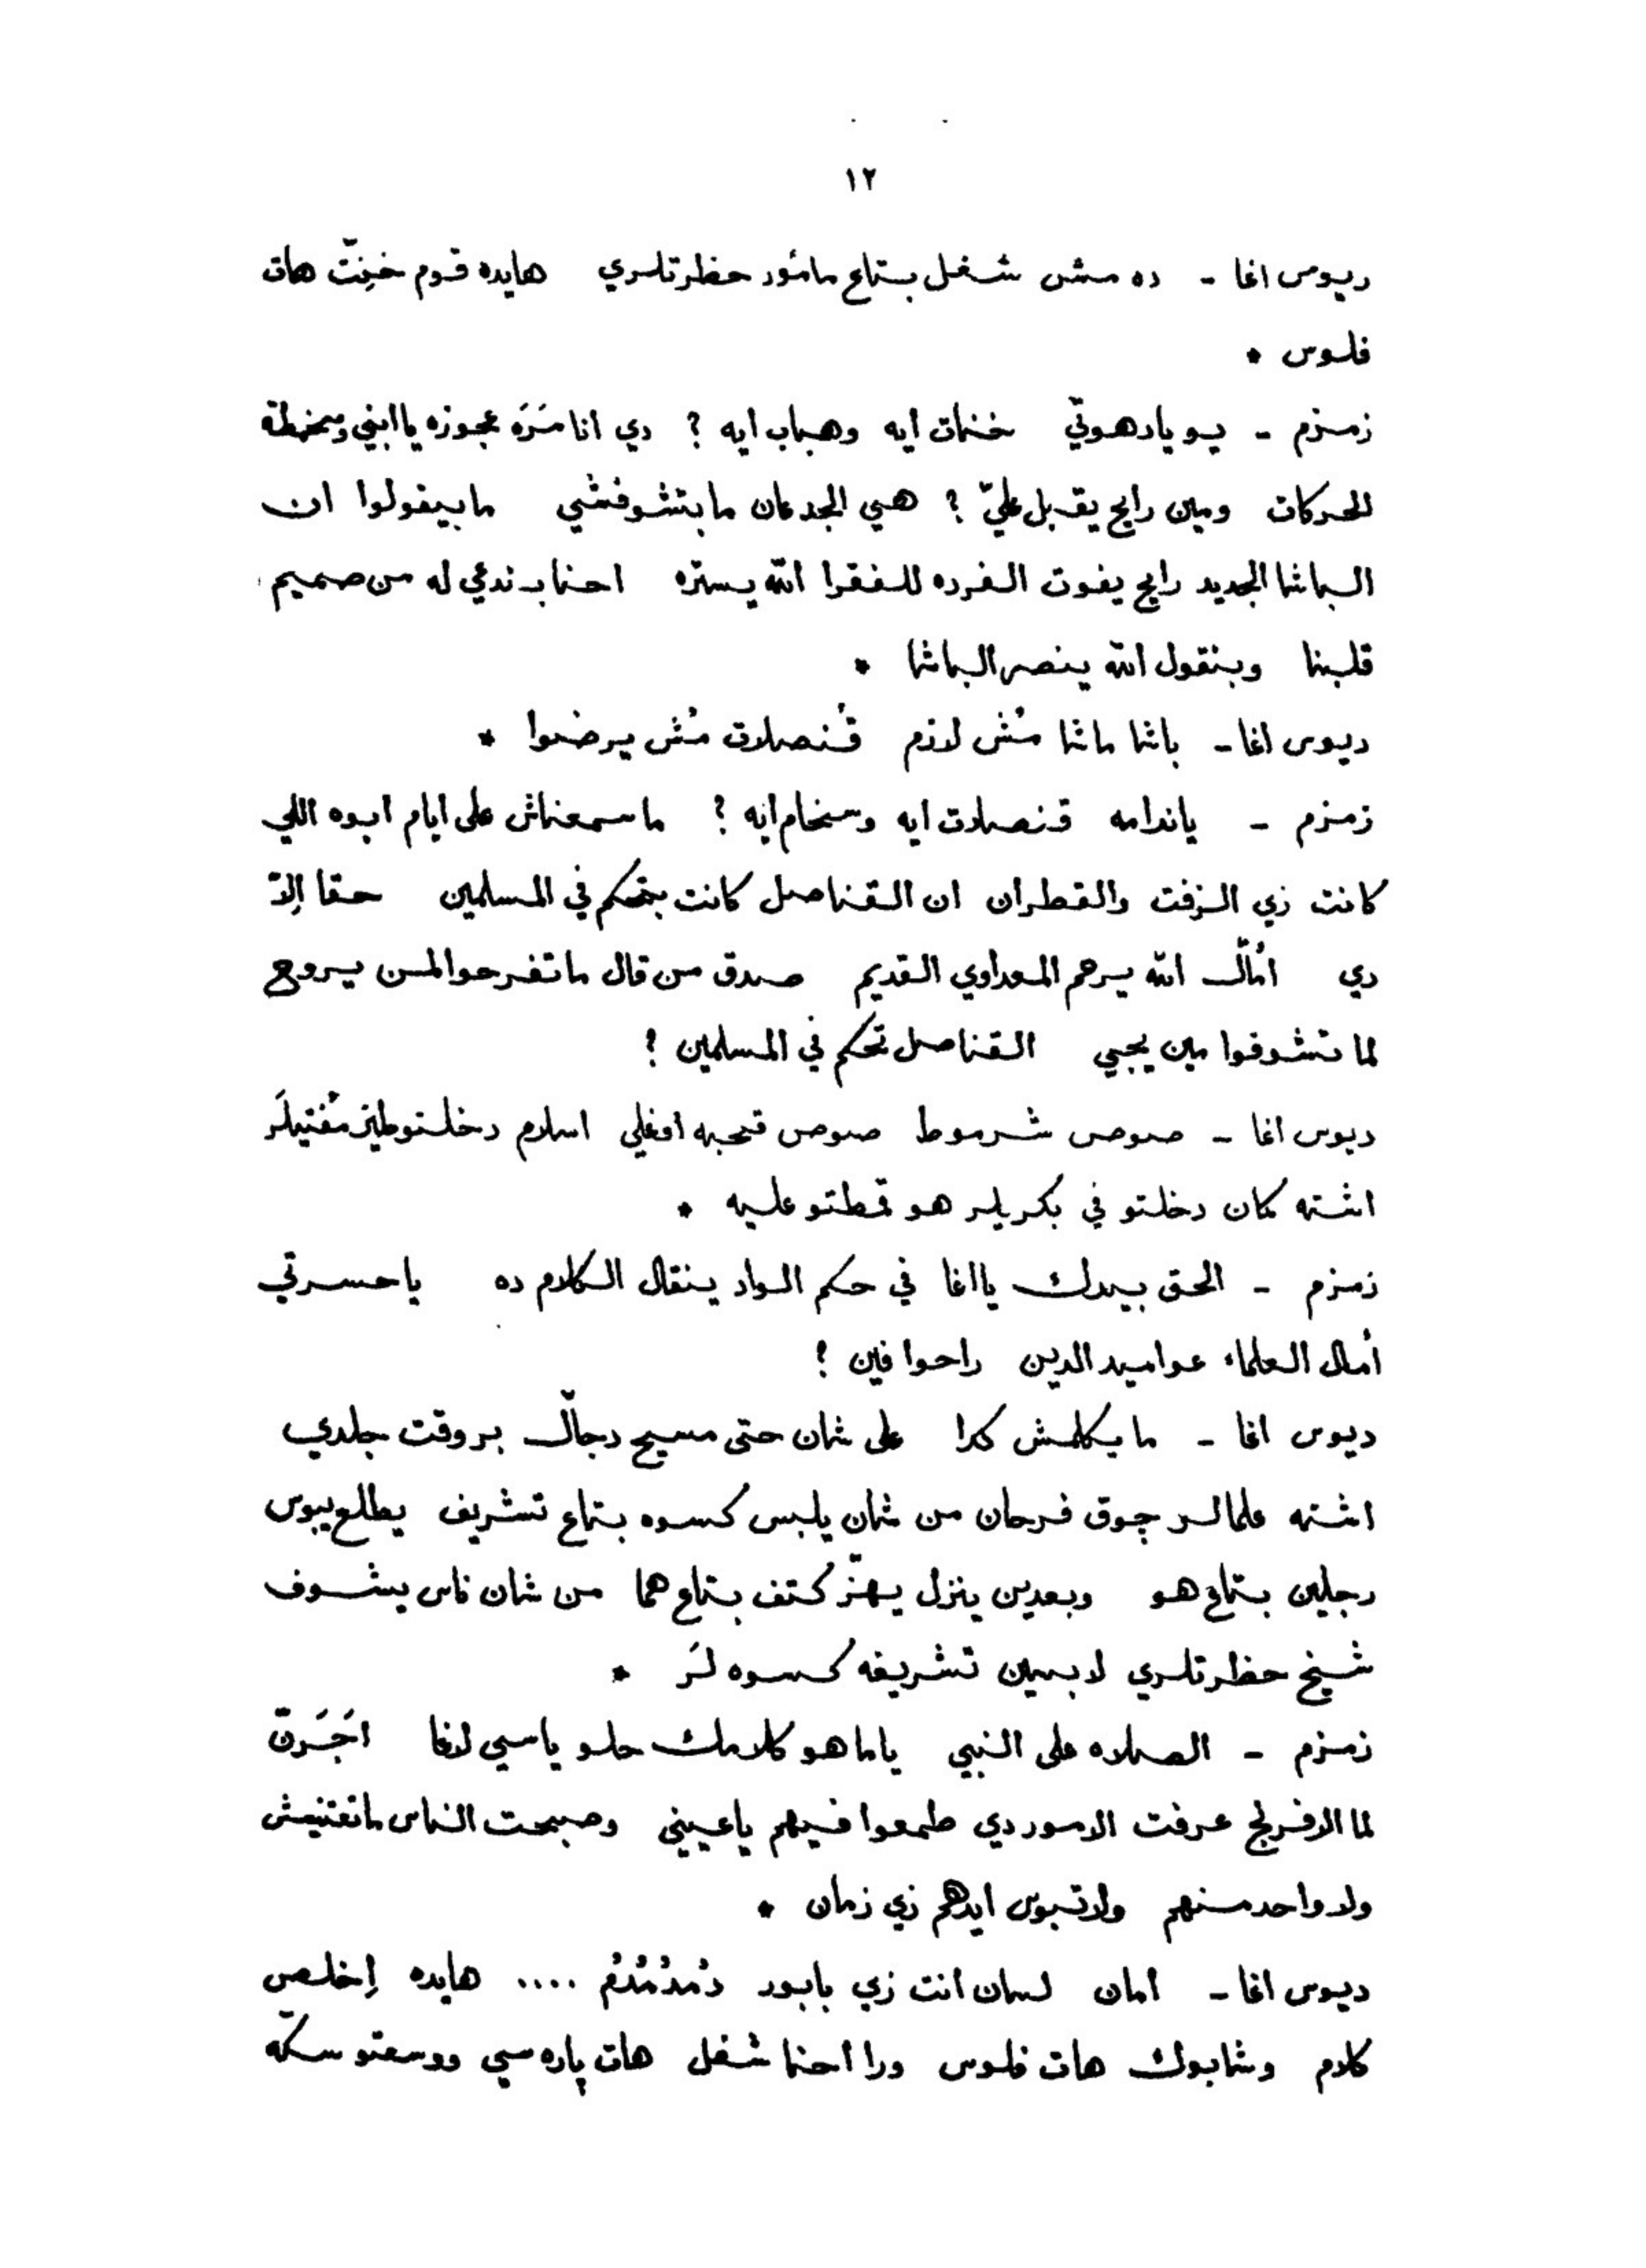 ١٢
ديوس اغا - ده مش شغل بتاع مأمور حظرتلري هايده قوم خنِتّ هات
فلوس *
زمزم - يو يادهوتي خنات ايه وهباب ايه ؟ دي انا مَرَه عجوزه يا ابني
الحركات ومين رايح يقبل عليّ ؟ هي الجدعان مابتشوفشي مابيقولوا ان
الباشا الجديد رايح يفوت الفرده للفقرا الله يستره احنا بندعي له من صميم
قلبنا وبنقول الله ينصر الباشا *
ديوس اغا - باشا ماشا مُش لازم قُنصلات مُش يرضوا *
زمزم - ياندامه قنصلات ايه وسخام ايه ؟ ماسمعناش على ايام ابوه اللي
كانت زي الزفت والقطران ان القناصل كانت بتحكم في المسلمين حقا إلّا
دي أمّال الله يرحم المعداوي القديم صدق من قال ماتفرحوا لمن يروح
لما تشوفوا مين يجي القناصل تحكم في المسلمين ؟
ديوس اغا - صوص شرموط صوص قحبه اوغلي اسلام دخلتو طيز مُفتيلَر
اشته كمان دخلتو في بكريلر هو قحطتو عليه *
زمزم - الحق بيدك يااغا في حكم الواد ينقال الكلام ده ياحسرتي
أمال العلماء عواميد الدين راحوا فين ؟
ديوس اغا - مايكلمش كدا على شان حتى مسيح دجّال بروقت جلدي
اشته علمالر جوق فرحان من شان يلبس كسوه بتاع تشريف يطلع يبوس
رجلين بتاع هو وبعدين ينزل يهزّ كتف بتاع هما من شان ناس يشوف
شيخ حظرتلري لابسين تشريفه كسوه لَر *
زمزم - الصلاه على النبي ياما هو كلامك حلو ياسي لاغا اجَرَنّ
لما الافرنج عرفت الامور دي طمعوا فيهم ياعيني وصبحت الناس ماتعتنيش
ولا واحد منهم ولا تبوس ايدهم زي زمان *
ديوس اغا - امان لسان انت زي بابور دُمدُمدُم .... هايده إخلص
كلام وشابوك هات فلوس ورا احنا شغل هات پاره سي ووسعتو سكّه